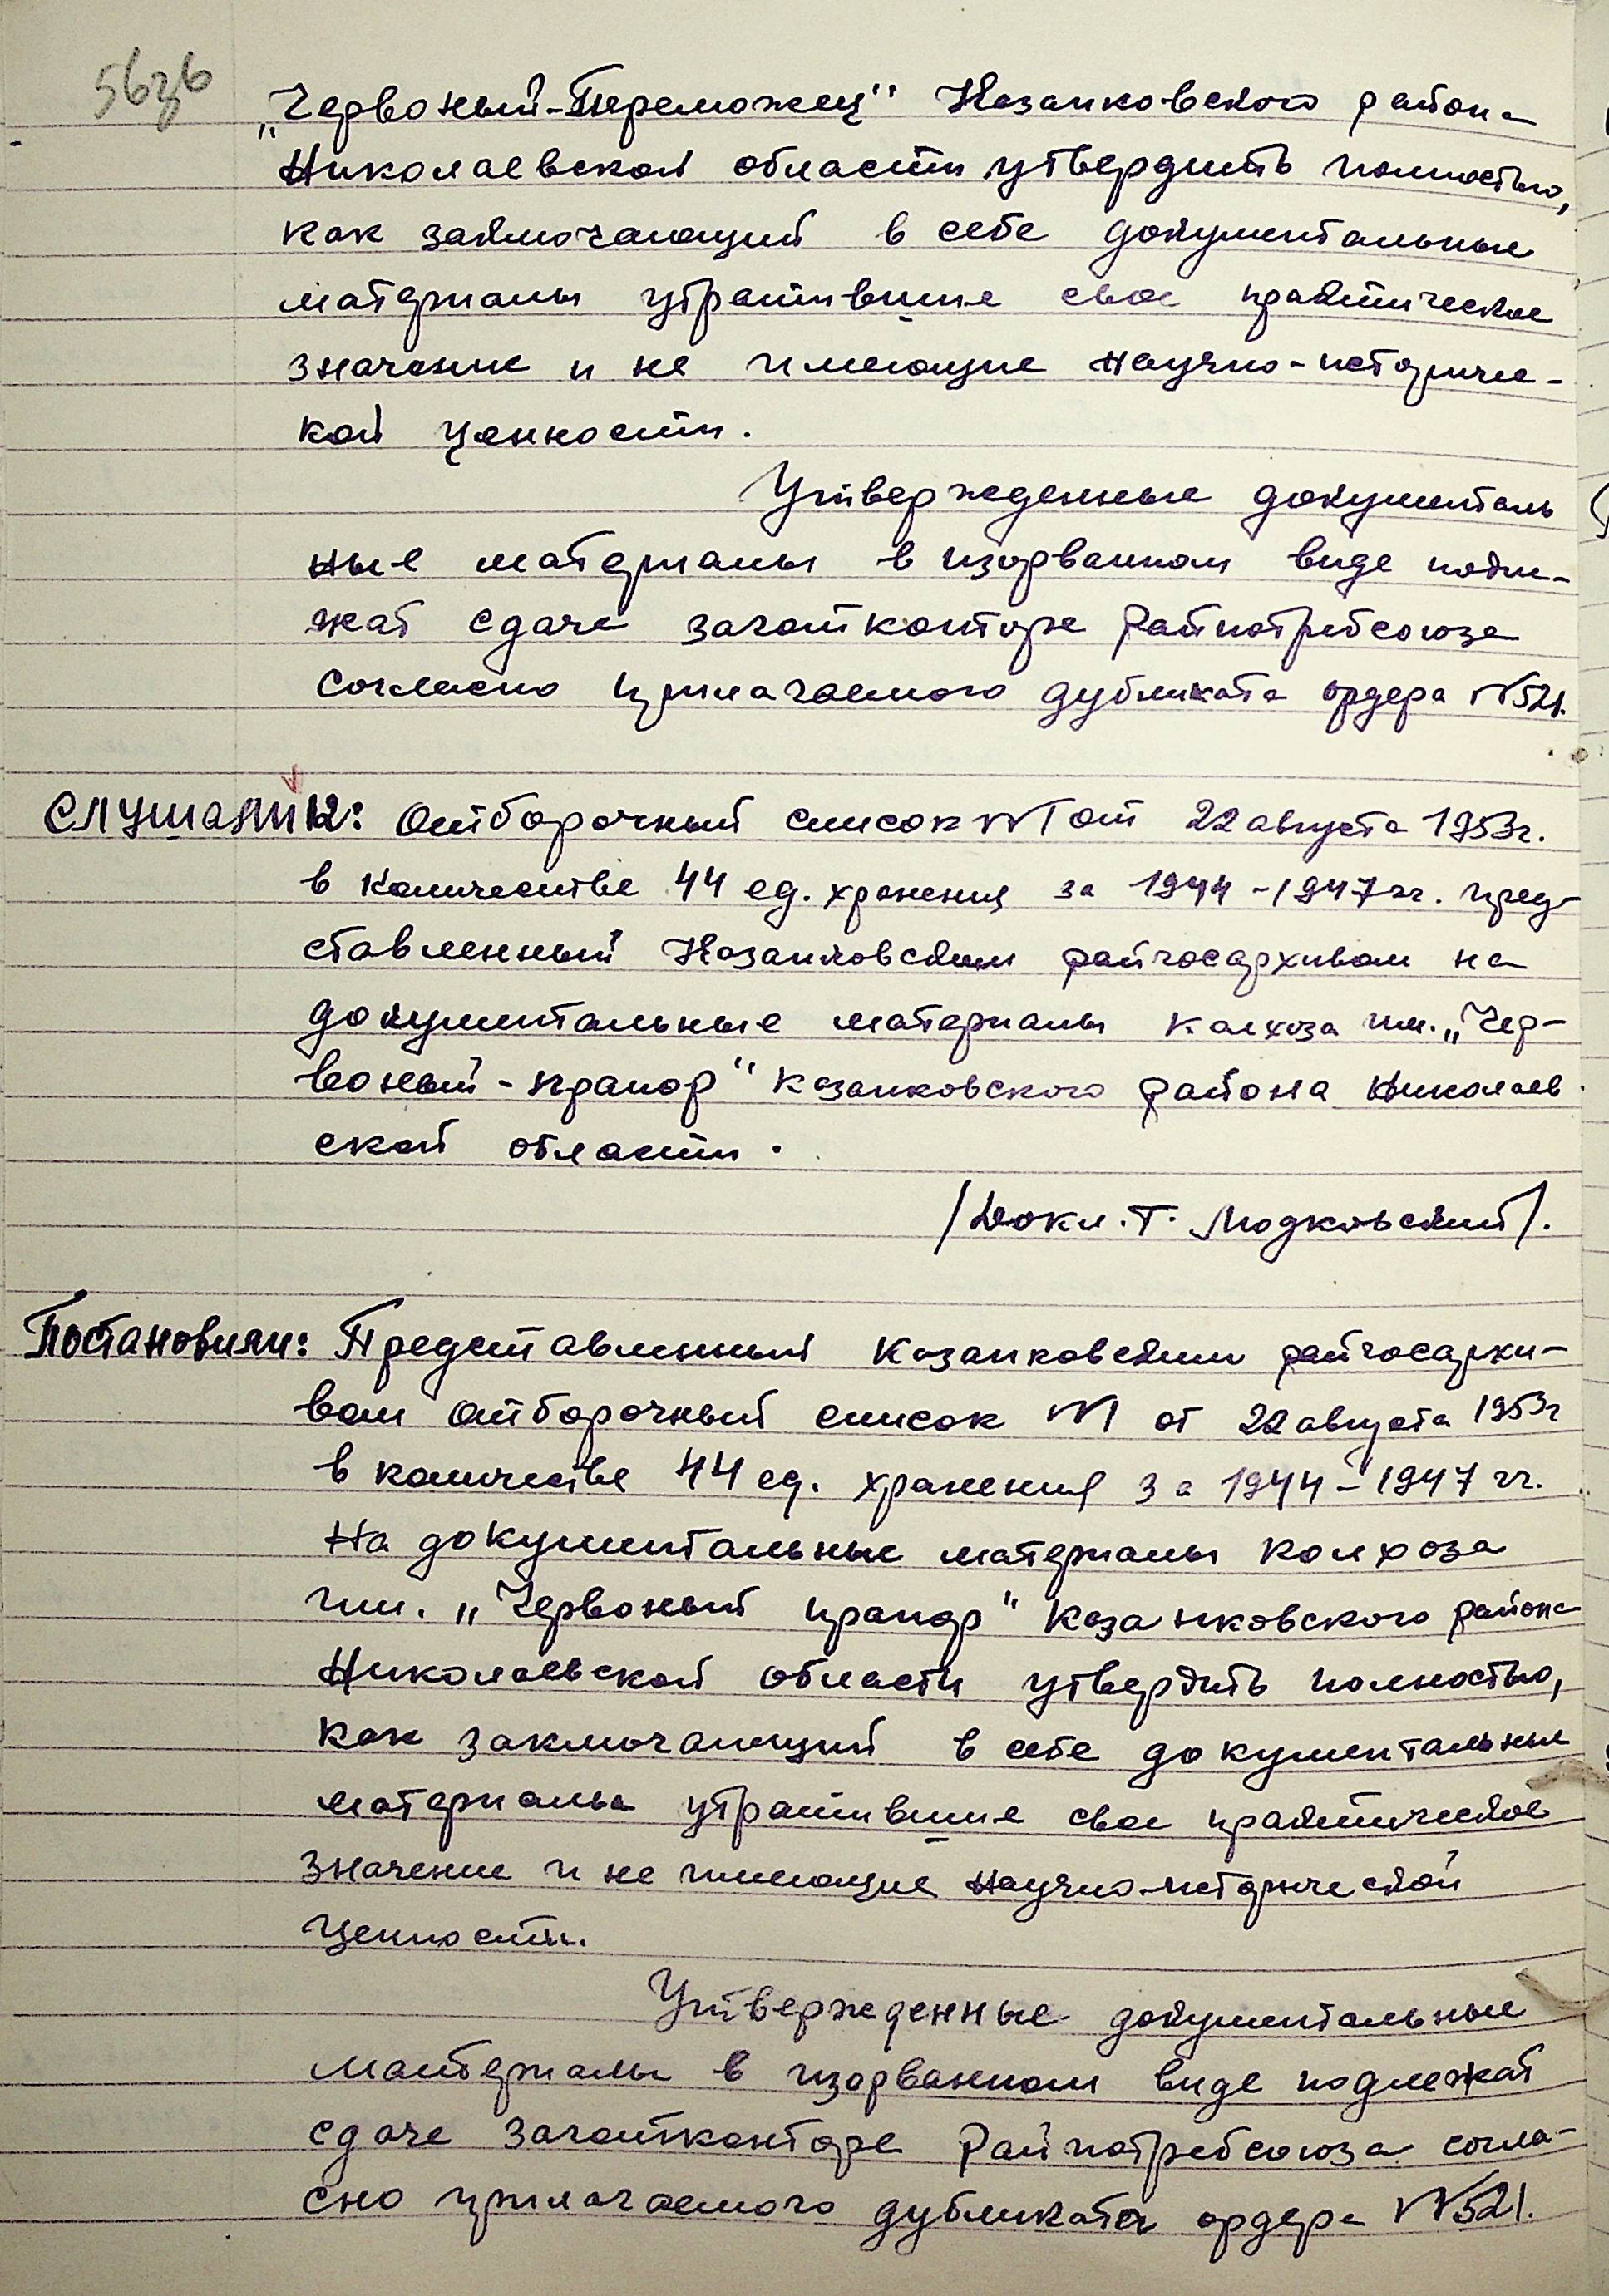 56зв
„Червоный-Переможец" Казанковского района
Николаевской области утвердить полностью,
как заключающий в себе документальные
материалы утратившие свое практическое
значение и не имеющие научно-историчес-
кой ценности.
Утвержденные документаль
ные материалы в изорванном виде подле-
жат сдаче заготконторе Райпотребсоюза
согласно прилагаемого дубликата ордера №521.
Слушали: Отборочный список №1 от 22 августа 1953г.
в количестве 44 ед. хранения за 1944-1947гг. пред-
ставленный Казанковским райгосархивом на
документальные материалы колхоза им. „Чер-
воный-прапор" Казанковского района Николаев
ской области.
/Докл. т. Модковский/.
Постановили: Представленный Казанковским райгосархи-
вом отборочный список №1 от 22 августа 1953г
в количестве 44 ед. хранения за 1944-1947 гг.
На документальные материалы колхоза
им. „Червоный прапор" Казанковского района
Николаевской области утвердить полностью,
как заключающий в себе документальные
материалы утратившие свое практическое
значение и не имеющие научно-исторической
ценности.
Утвержденные документальные
материалы в изорванном виде подлежат
сдаче заготконторе Райпотребсоюза согла-
сно прилагаемого дубликата ордера №521.